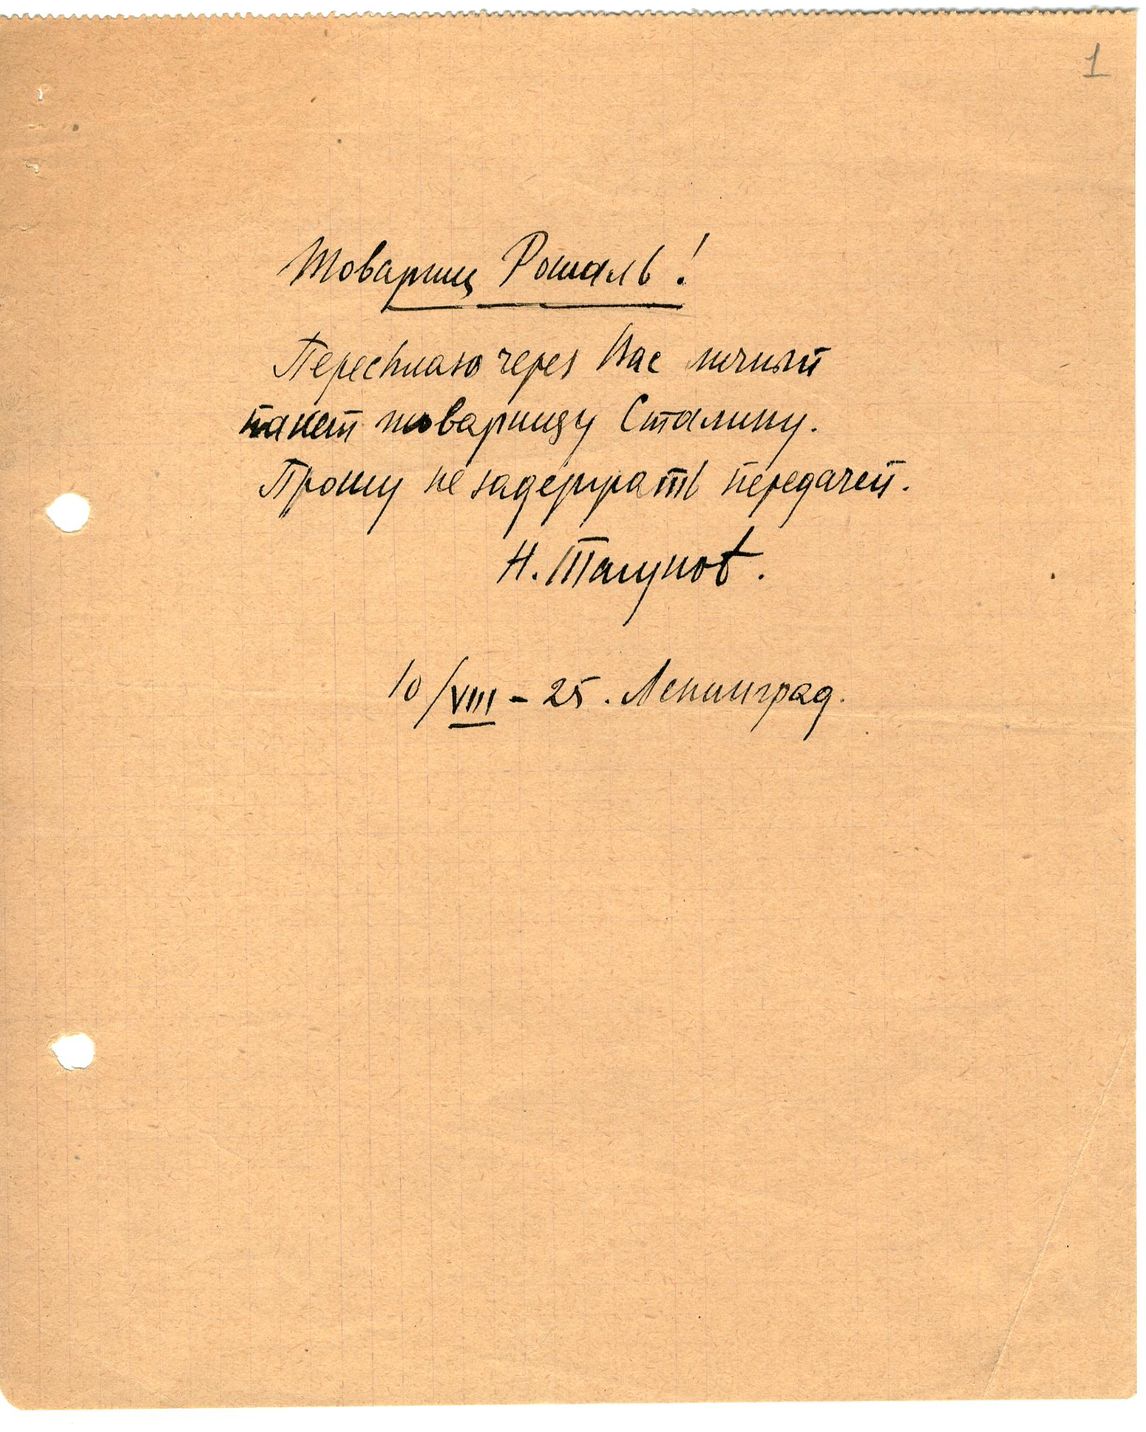 1
Товарищ Рошаль!
Пересылаю через Вас личный
пакет товарищу Сталину.
Прошу не задержать передачей.
Н.
10/VIII – 25. Ленинград.